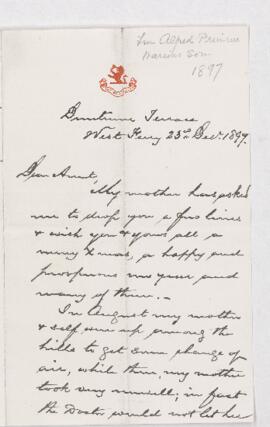 1897
Terrace
West Ferry 23rd Decr. 1897.
Dear Aunt,
My mother has asked
me to drop you a few lines
& wish you & yours all a
merry Xmas, a happy and
prosperous new year and
many of them. –
In August my mother
& self were up among the
hills to get some change of
air, while there, my mother
took very unwell; in fact
the Doctor would not let her